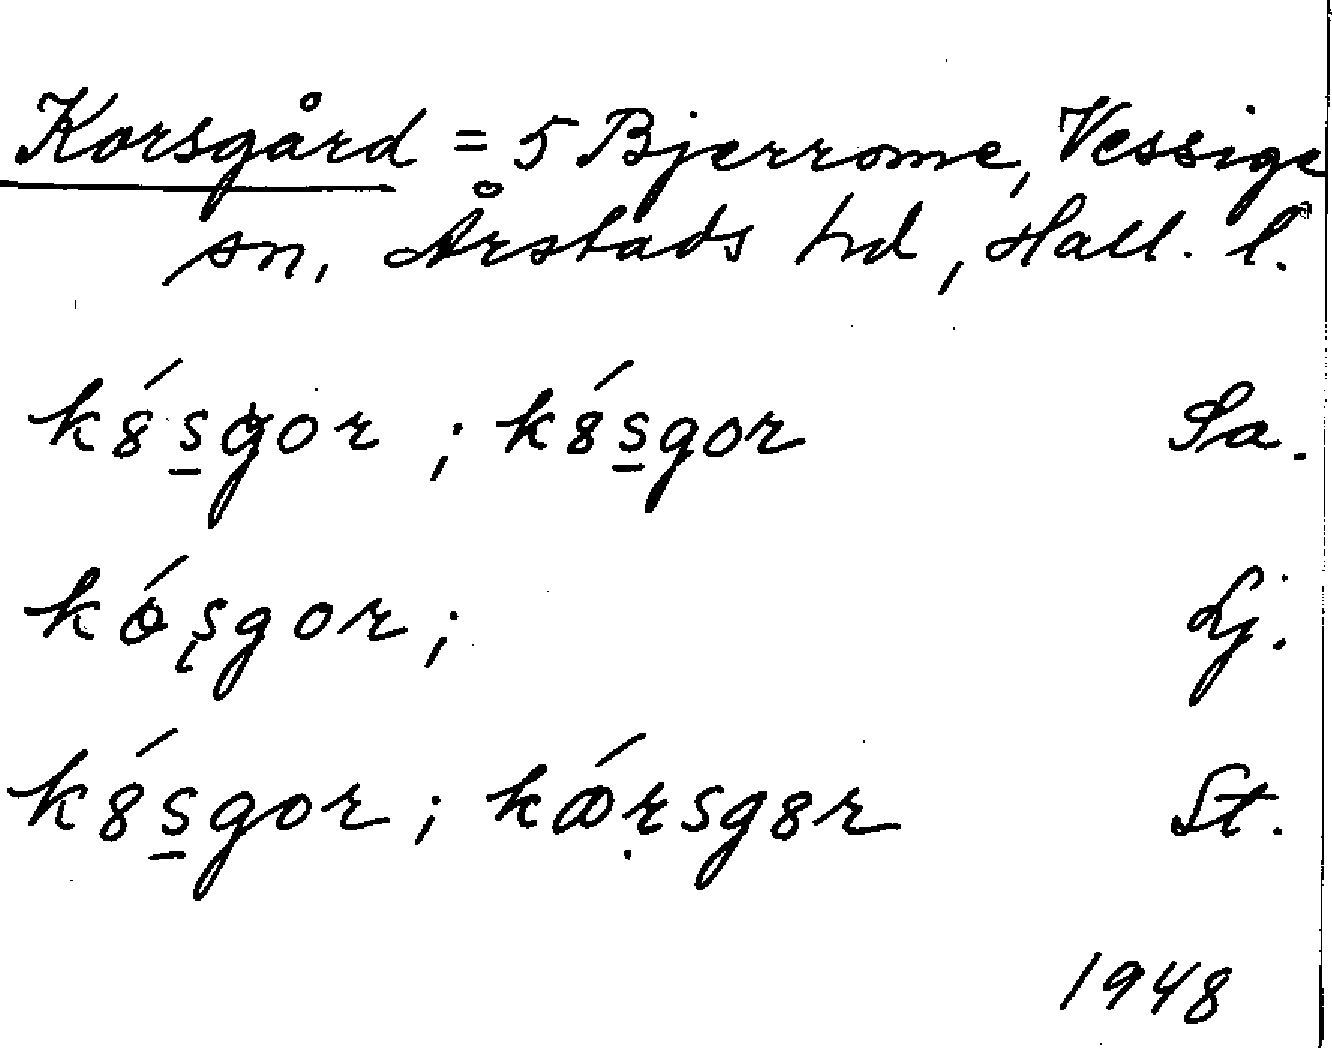 Korsgård = 5 Bjerrome, Vessige
sn, Årstads hd, Hall. l.
k8́s̲gor ; k8́s̲gor Sa.
kǿşgor ; Lj.
k8́s̲gor ; kǿṛsg8r St.
1948